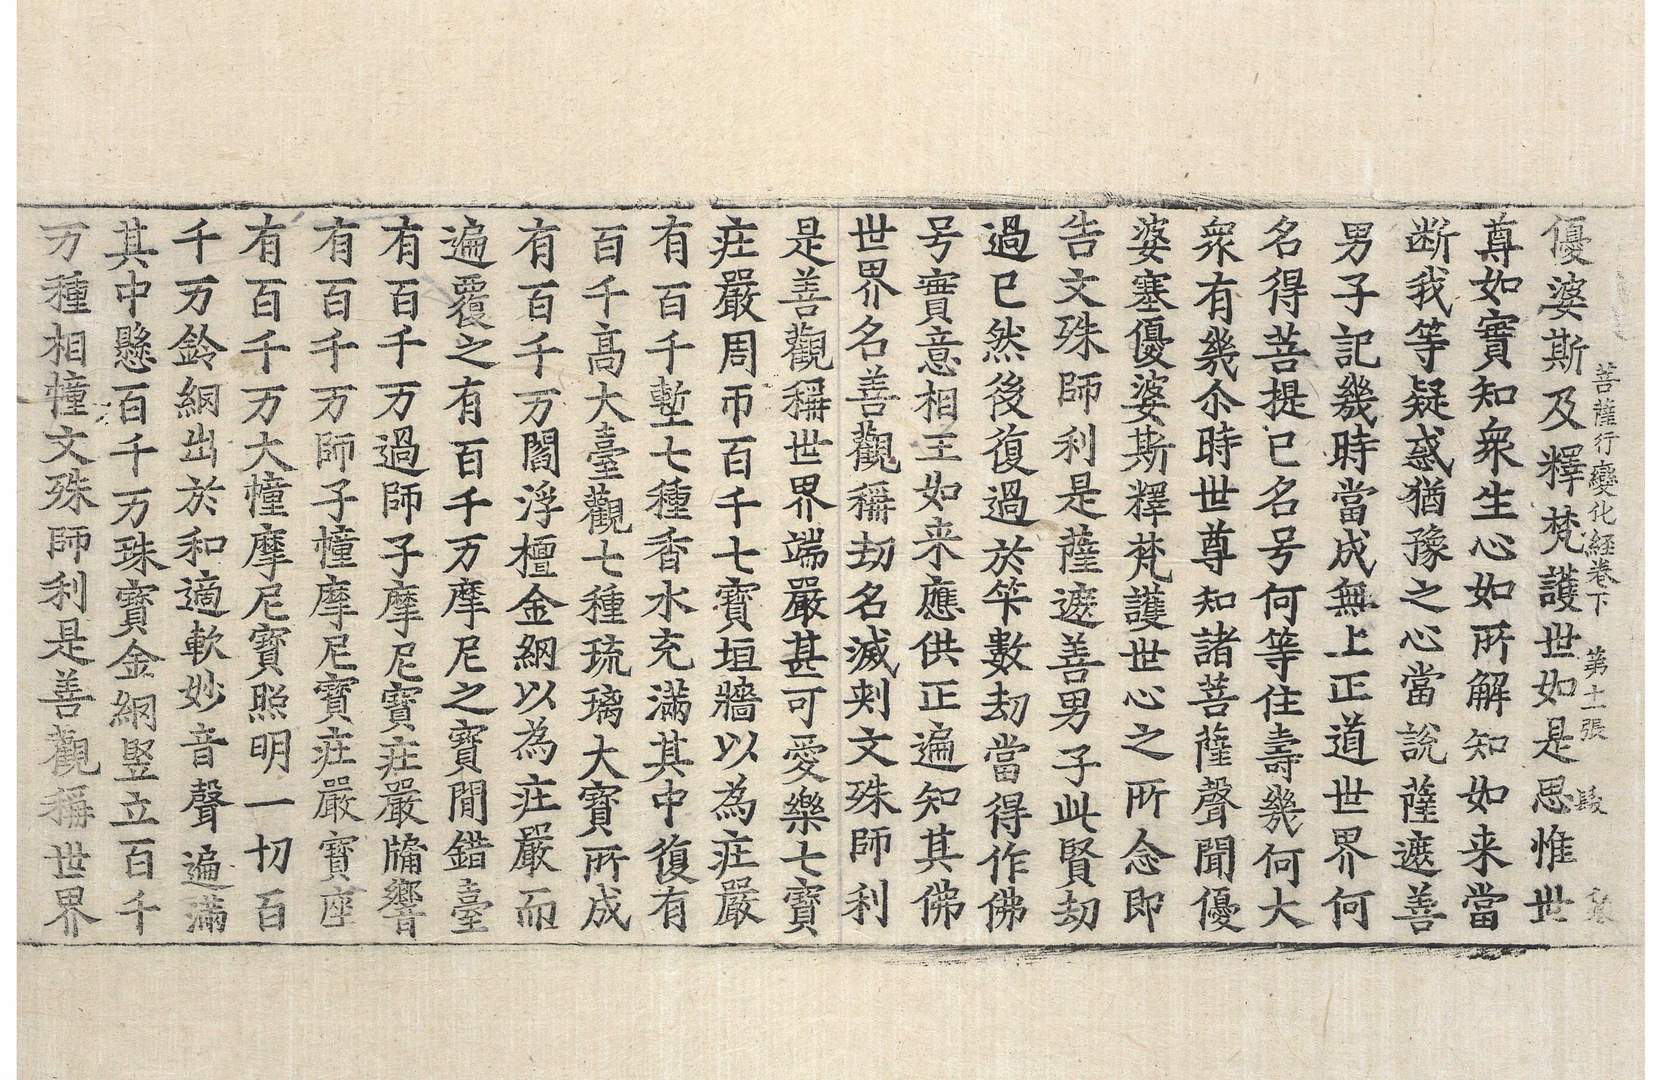 菩薩行變化經卷下　第十一張
優婆斯及釋梵護世如是思惟世
尊如實知衆生心如所解知如来當
断我等疑惑猶豫之心當說薩遮善
男子記幾時當成無上正道世界何
名得菩提已名号何等住壽幾何大
衆有幾尒時世尊知諸菩薩聲聞優
婆塞優婆斯釋梵護世心之所念即
告文殊師利是薩遮善男子此賢劫
過已然後復過於筭數劫當得作佛
号實意相王如来應供正遍知其佛
世界名善觀稱劫名滅刾文殊師利
是善觀稱世界端嚴甚可愛樂七寶
庄嚴周帀百千七寶垣牆以為庄嚴
有百千塹七種香水充滿其中復有
百千高大臺觀七種琉璃大寶所成
有百千万閻浮檀金網以為庄嚴而
遍覆之有百千万摩尼之寶間錯臺
有百千万過師子摩尼寶庄嚴牗嚮
有百千万師子幢摩尼寶庄嚴寶座
有百千万大幢摩尼寶照明一切百
千万鈴網出於和適軟妙音聲遍滿
其中懸百千万珠寶金網竪立百千
万種相幢文殊師利是善觀稱世界